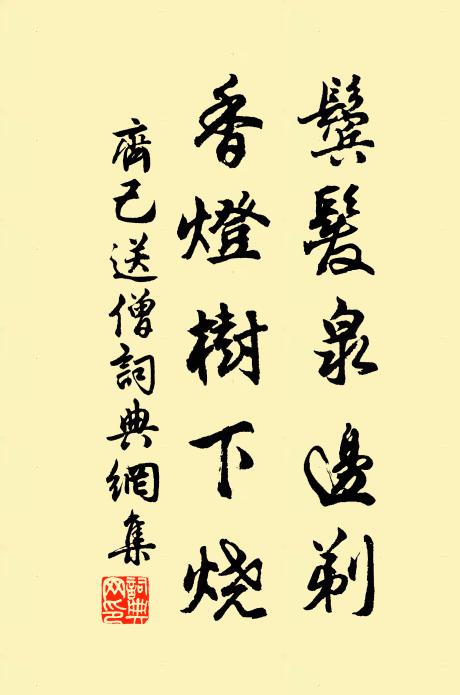 鬓髮泉邊剃
香燈樹下烧
齊己送僧詞典網集
詞典网印